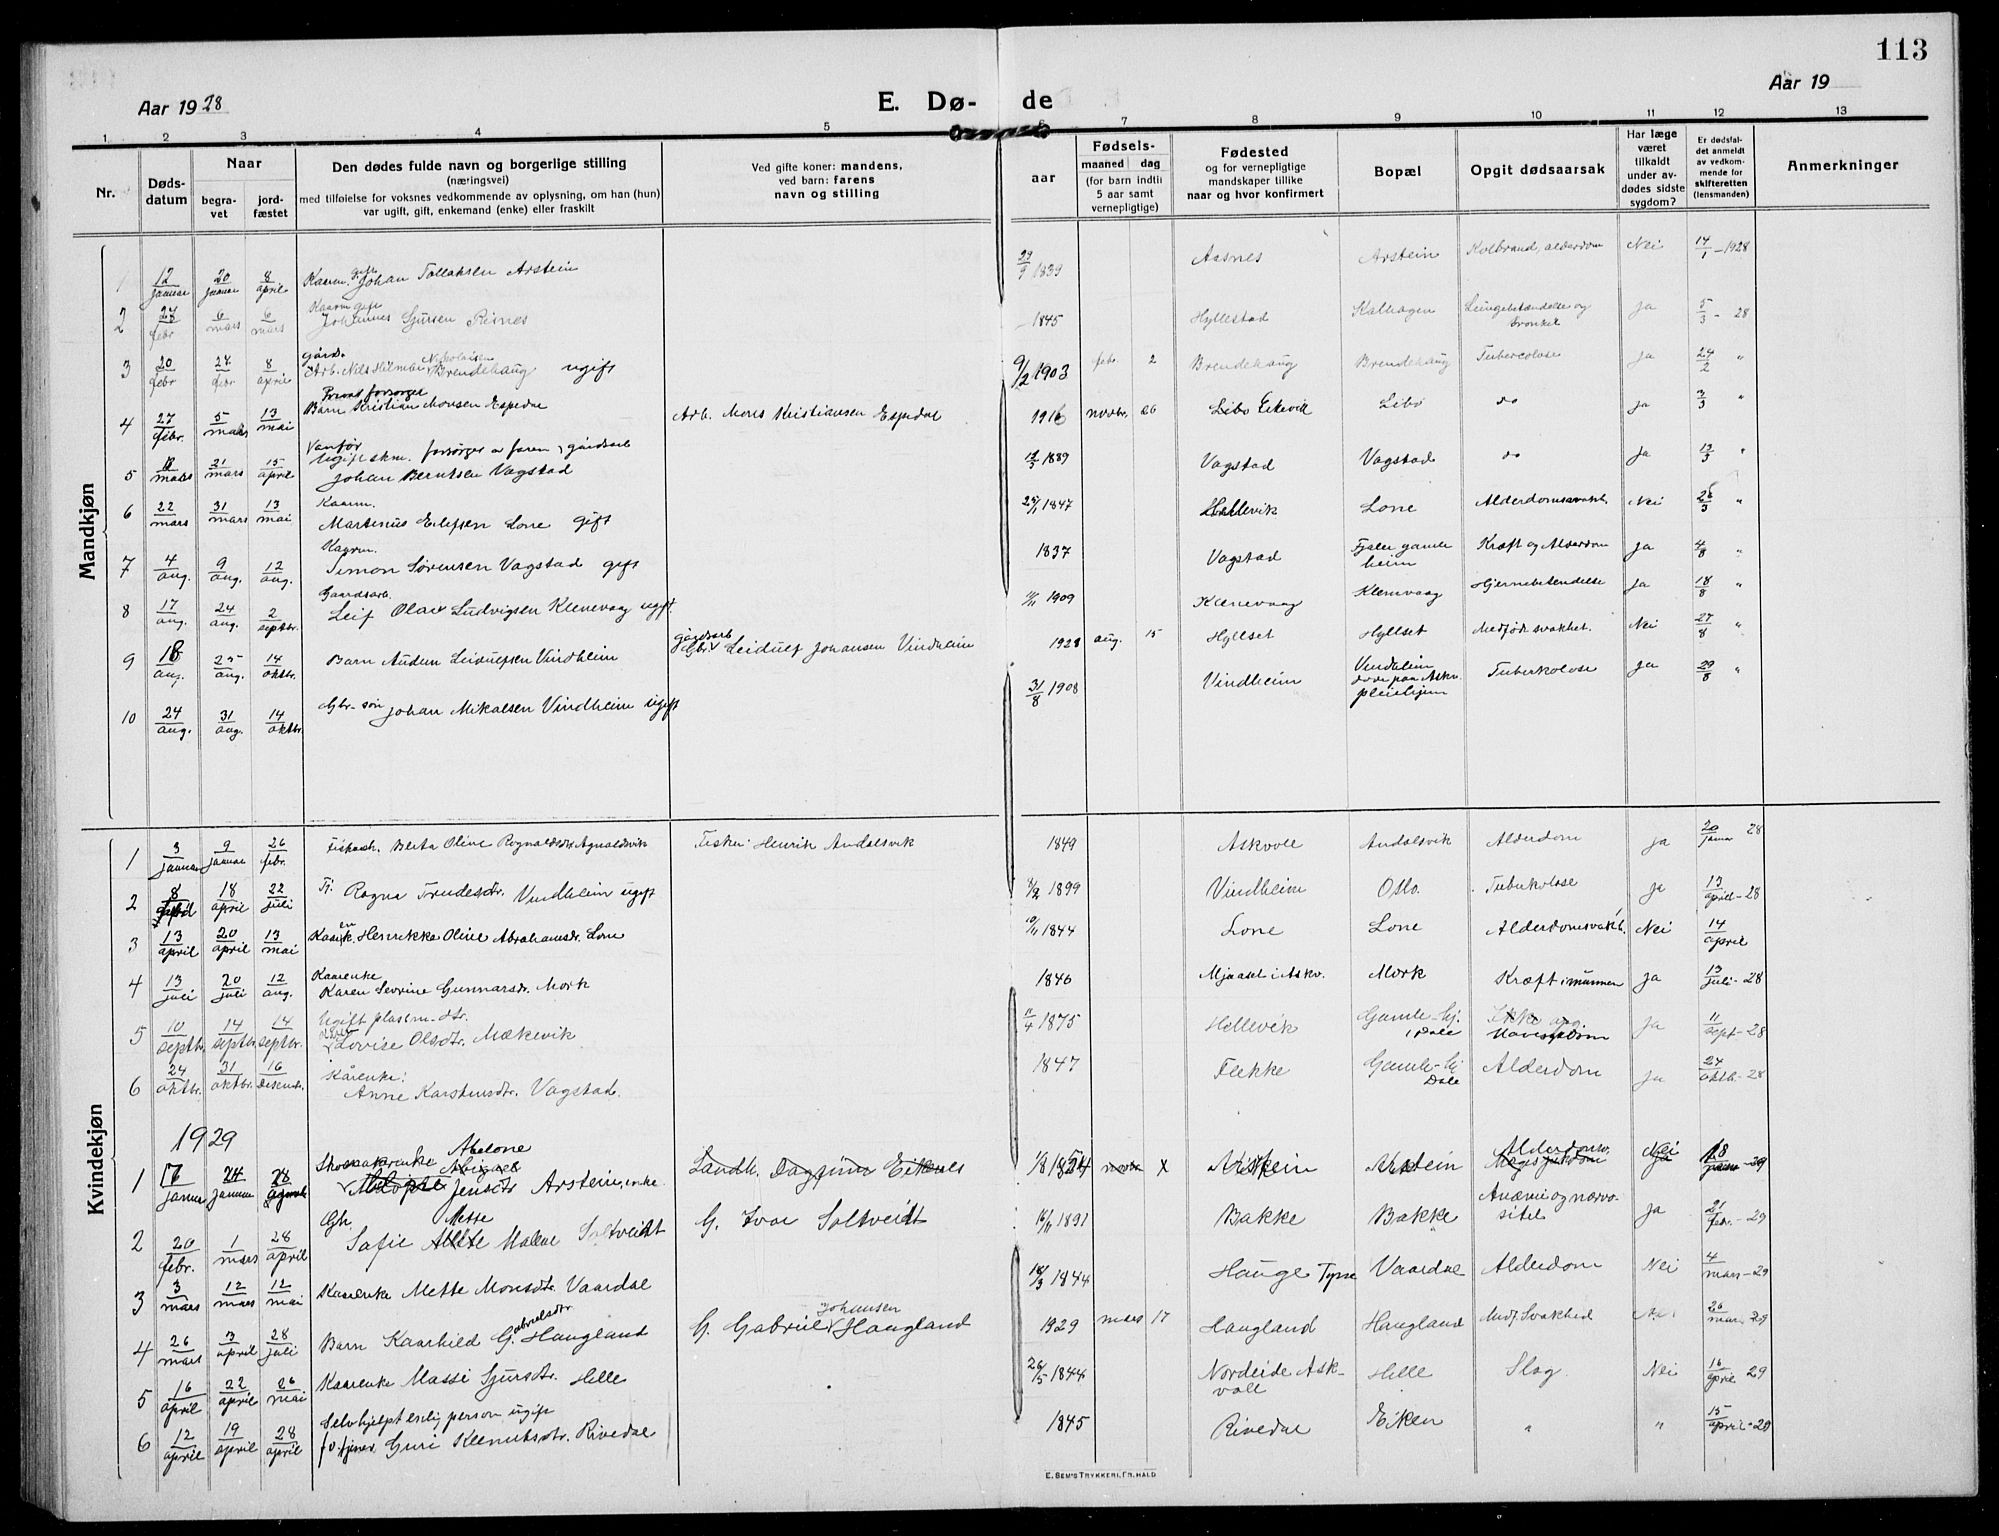 113
Aar 1928 E. Dø- de Aar 19
1 2 3 4 5 6 7 8 9 10 11 12 13
Nr. Dødsdatum Naar begravet jordfæstet
Den dødes fulde navn og borgerlige stilling
(næringsvei)
med tilføielse for voksnes vedkommende av oplysning, om han (hun)
var ugift, gift, enkemand (enke) eller fraskilt
Ved gifte koner: mandens,
ved barn: farens
navn og stilling
Fødsels-
aar maaned dag
(for barn indtil
5 aar samt
vernepligtige)
Fødested
og for vernepligtige
mandskaper tillike
naar og hvor konfirmert
Bopæl
Opgit dødsaarsak
Har læge
været
tilkaldt
under av-
dødes sidste
sygdom?
Er dødsfal-
det anmeldt
av vedkom-
mende for
skifteretten
(lensmanden)
Anmerkninger
Mandkjøn
1 12/januar 20/januar 8/april Kaarm. gift Johan Tollaksen Arstein 23/9 1839 Aasnes Arstein Kolbrand, alderdom Nei 14/1 - 1928
2 27/febr 6/mars 6/mars Kaarm gift Johannes Sjursen Risnes 1845 Hyllestad Kalhagen Lungebetændelse og Bronkit ja 5/3 - 28
3 20/febr 27/febr 8/april gårds Arb. Nils Hilmar Nikolaisen Brendehaug ugift 9/2 1903 febr 2 Brendehaug Brendehaug Tubercolose ja 24/2 "
4 27/febr. 5/mars 13/mai Privat forsørget Barn Kristian Monsen Espedal Arb. Mons Kristiansen Espedal 1916 novbr. 26 Libo Eikevik Libo do ja 3/3 "
5 12/mars 21/mars 15/april Vanfør Ugift skm. forsørges av faren, gårdsarb Johan Berntsen Vagstad 12/3 1889 Vagstad Vagstad do ja 13/3 "
6 22/mars 31/mars 13/mai Kaarm. Martinus Eilefsen Lone gift 25/11 1847 Hellevik Lone Alderdomssvakh. Nei 26/3 "
7 4/aug. 9/aug. 12/aug. Kaarm. Simon Sørensen Vagstad gift 1837 Vagstad Fjaler gamle heim Kræft og Alderdom ja 4/8 "
8 17/aug. 24/aug. 2/septbr. Gaardsarb. Leif Olav Ludvigsen Klenevaag ugift 11/11 1909 Klenevaag Klenevaag Hjernebetendelse ja 18/8 "
9 18/aug. 25/aug. 14/oktbr. Barn Audun Leidulfsen Vindheim gårdsarb Gbr. Leidulf Johansen Vindheim 1928 aug. 15 Hyllset Hyllset Medfødt svakhet. Nei 27/8 "
10 24/aug. 31/aug. 14/oktbr. Gbr-søn Johan Mikalsen Vindheim ugift 31/8 1908 Vindheim Vindheim døde paa Askv. pleiehjem Tuberkolose ja 29/8 "
Kvindekjøn
1 3/januar 9/januar 26/febr. Fiskarh. Berta Oline Rognaldsdtr. Fisker Henrik Andalsvik 1849 Askvoll Andalsvik Alderdom ja 20/januar 28
2 8/april 18/april 22/juli Fr. Ragna Trudesdtr. Vindheim ugift 4/2 1899 Vindheim Oslo. Tuberkolose ja 13/april - 28
3 13/april 20/april 13/mai Kaarenk. Henrikka Oline Abrahamsdr. Lone 10/11 1844 Lone Lone Alderdomsvakh. Nei 14/april
4 13/juli 20/juli 12/aug. Kaarenke Karen Sevrine Gunnarsdr. Mork 1846 Mjaaset i Askv. Mork Kræft i munnen ja 13/juli - 28
5 10/septbr. 14/septbr. 14/septbr. Ugift plasem-dtr. Lovise Olsdtr. Mækevik 11/4 1875 Hellevik Gamle-hj. i Dale ja 11/sept - 28
6 24/oktbr. 31/oktbr. 16/desembr. Kårenke: Anne Karstensdtr. Vagstad. 1847 Flekke Gamle-hj Dale Alderdom ja 24/oktb. - 28
1929
1 17/januar 24/januar 28/april Skomakerenke Abelone Jensdtr Arstein, enke Landh. Dagfinn Eiknes 1854 x Arstein Arstein Alderdomsv. Nei 18/januar - 29
2 20/febr. 1/mars 28/april Gh. Sofie Mette Malene Soltveidt G. Ivar Soltveidt 16/11 1891 Bakke Bakke Anæmi og nervøsitet ja 21/febr. - 29
3 3/mars 12/mars 12/mai Kaarenke Mette Monsdtr. Vaardal 18/3 1844 Hauge Tysse Vaardal Alderdom Nei 4/mars - 29
4 26/mars 3/april 28/juli Barn Kaarhild Gabrielsdtr Haugland G. Gabriel Johansen Haugland 1929 mars 17 Haugland Haugland Medf. Svakhed Nei 26/mars - 29
5 16/april 22/april 26/mai Kaarenke Massi Sjursdtr. Helle 26/5 1844 Nordeide Askvoll Helle Slag Nei 16/april 29
6 12/april 19/april 28/april Selvhjelpt enslig person ugift fv. tjener. Guri Klemetsdtr. Rivedal 1845 Rivedal Eiken " " 15/april - 29
E. SEM'S TRYKKERI, FR.HALD